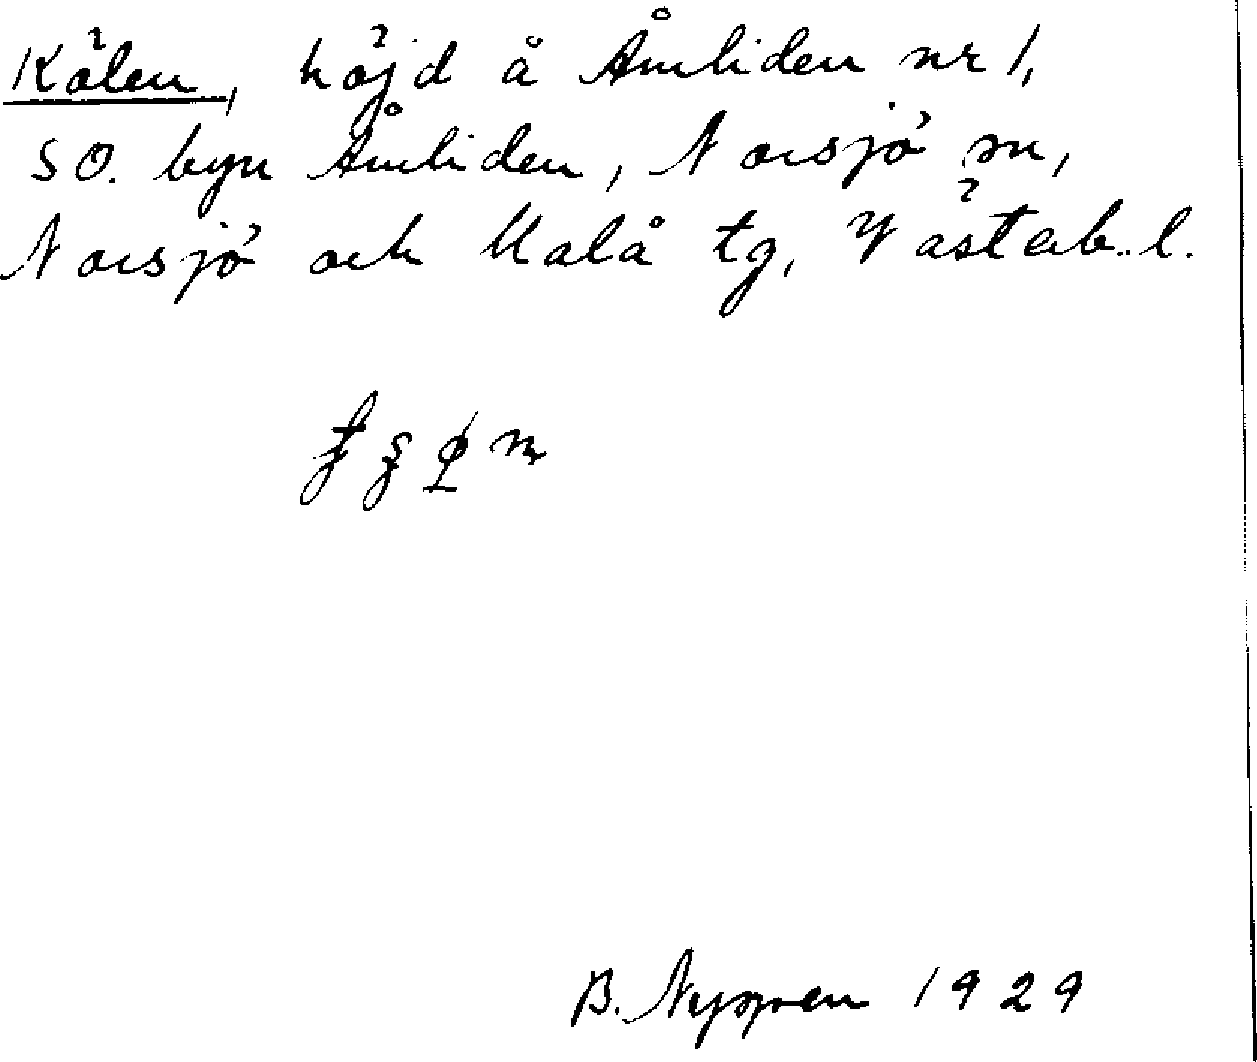 Kölen, höjd å Åmliden nr 1,
SO. byn Åmliden, Norsjö sn,
Norsjö och Malå tg, Västerb. l.
B. Nygren 1929